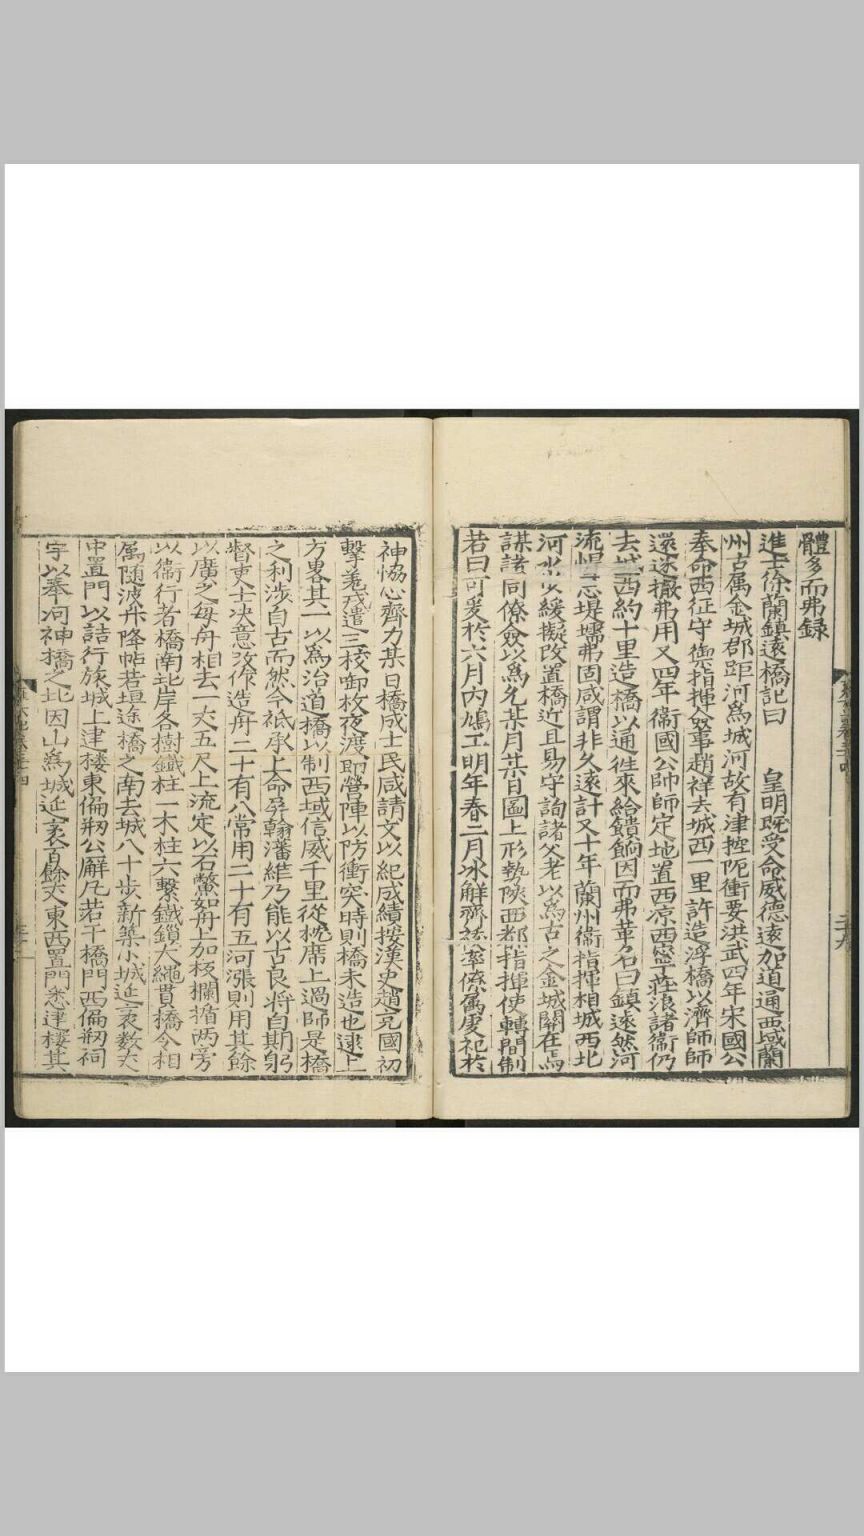 體多而弗録
進士徐蘭鎮遠橋記曰 皇明既受命威德遠加道通西域蘭
州古属金城郡距河為城河故有津控阨衝要洪武四年宋國公
奉命西征守禦指揮僉事趙祥去城西一里許造浮橋以濟師師
還遂撤弗用又四年衞國公帥師定地置西凉西寧莊浪諸衞仍
去城西約十里造橋以通徃來給饋餉因而弗革名曰鎮遠然河
流悍 堤壖弗固咸謂非久遠計又十年蘭州衞指揮相城西北
河水 緩擬改置橋近且易守詢諸父老以為古之金城關在焉
謀諸同僚僉以為允某月某日圖上形勢陝西都指揮使轉聞制
若曰可爰於六月内鳩工明年春二月氷觧齋 率僚属虔祀於
神恊心齊力某日橋成士民咸請文以紀成績按漢史趙充國初
擊羌戎遣三校啣枚夜渡即營陣以防衝突時則橋未造也逮上
方畧其一以為治道橋以制西域信威千里從枕席上過師是橋
之利渉自古而然今祗承上命孕翰藩維乃能以古良将自期躬
督吏士决意改作造舟二十有八常用二十有五河漲則用其餘
以廣之每舟相去一丈五尺上流定以石鱉如舟上加板欄揗两旁
以衞行者橋南北岸各樹鐵柱一木柱六繫鐵鎖大繩貫橋令相
属随波升降帖若垣途橋之南去城八十步新築小城延袤数丈
中置門以詰行旅城上建楼東偏剏公廨凢若干橋門西偏剏祠
宇以奉河神橋之北因山為城延袤百餘丈東西置門悉建楼其